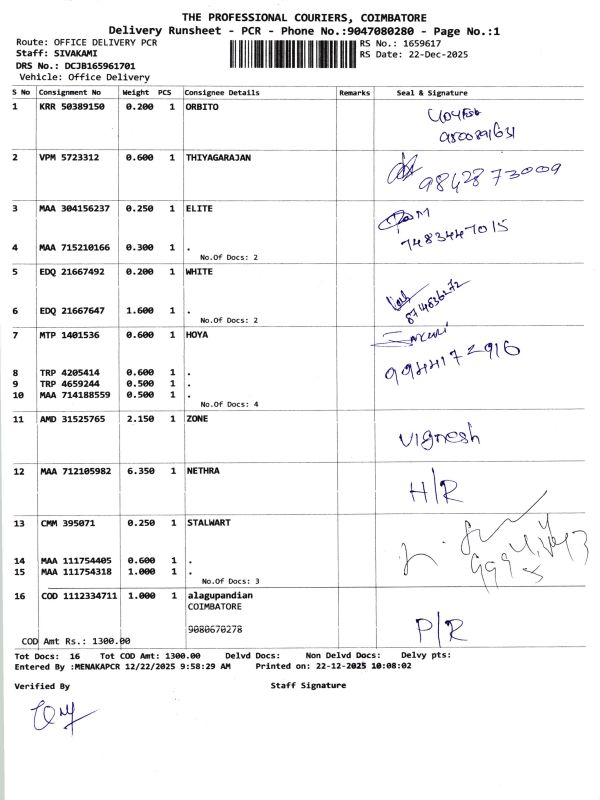 THE PROFESSIONAL COURIERS, COIMBATORE
Delivery Runsheet - PCR - Phone No.:9047080280 - Page No.:1
Route: OFFICE DELIVERY PCR RS No.: 1659617
Staff: SIVAKAMI RS Date: 22-Dec-2025
DRS No.: DCJB165961701
Vehicle: Office Delivery
S No Consignment No Weight PCS Consignee Details Remarks Seal & Signature
1 KRR 50389150 0.200 1 ORBITO
9500891631
2 VPM 5723312 0.600 1 THIYAGARAJAN
9842873009
3 MAA 304156237 0.250 1 ELITE
7483447015
4 MAA 715210166 0.300 1 .
No.Of Docs: 2
5 EDQ 21667492 0.200 1 WHITE
6 EDQ 21667647 1.600 1 .
No.Of Docs: 2
7 MTP 1401536 0.600 1 HOYA
9944172916
8 TRP 4205414 0.600 1 .
9 TRP 4659244 0.500 1 .
10 MAA 714188559 0.500 1 .
No.Of Docs: 4
11 AMD 31525765 2.150 1 ZONE
Vignesh
12 MAA 712105982 6.350 1 NETHRA
H/R
13 CMM 395071 0.250 1 STALWART
14 MAA 111754405 0.600 1 .
15 MAA 111754318 1.000 1 .
No.Of Docs: 3
16 COD 1112334711 1.000 1 alagupandian
COIMBATORE
9080670278
P/R
COD Amt Rs.: 1300.00
Tot Docs: 16 Tot COD Amt: 1300.00 Delvd Docs: Non Delvd Docs: Delvy pts:
Entered By :MENAKAPCR 12/22/2025 9:58:29 AM Printed on: 22-12-2025 10:08:02
Verified By Staff Signature